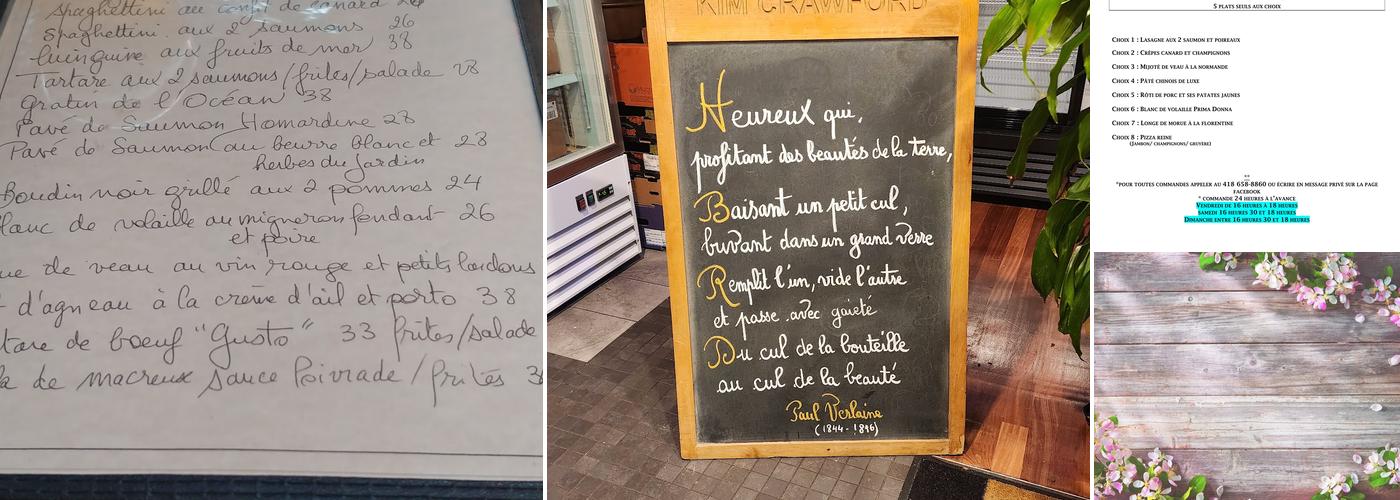 Spaghettini au confit de canard
Spaghettini aux 2 saumons 26
Linguine aux fruits de mer 38
Tartare aux 2 saumons/frites/salade 28
Gratin de l'Océan 38
Pavé de Saumon Homardine 28
Pavé de Saumon au beurre blanc et 28
herbes du Jardin
Boudin noir grillé aux 2 pommes 24
lanc de volaille au migneron fondant 26
et poire
ue de veau au vin rouge et petits lardons
d'agneau à la crème d'ail et porto 38
tare de boeuf "Gusto" 33 frites/salade
de macreuse sauce Poivrade/frites
KIM CRAWFORD
Heureux qui,
profitant des beautés de la terre,
Baisant un petit cul,
buvant dans un grand verre
Remplit l'un, vide l'autre
et passe avec gaieté
Du cul de la bouteille
au cul de la beauté
Paul Verlaine
(1844-1896)
5 PLATS SEULS AUX CHOIX
CHOIX 1 : LASAGNE AUX 2 SAUMON ET POIREAUX
CHOIX 2 : CRÊPES CANARD ET CHAMPIGNONS
CHOIX 3 : MIJOTÉ DE VEAU À LA NORMANDE
CHOIX 4 : PÂTÉ CHINOIS DE LUXE
CHOIX 5 : RÔTI DE PORC ET SES PATATES JAUNES
CHOIX 6 : BLANC DE VOLAILLE PRIMA DONNA
CHOIX 7 : LONGE DE MORUE À LA FLORENTINE
CHOIX 8 : PIZZA REINE
(JAMBON/ CHAMPIGNONS/ GRUYÈRE)
*POUR TOUTES COMMANDES APPELER AU 418 658-8860 OU ÉCRIRE EN MESSAGE PRIVÉ SUR LA PAGE
FACEBOOK
* COMMANDE 24 HEURES À L'AVANCE
VENDREDI DE 16 HEURES À 18 HEURES
SAMEDI 16 HEURES 30 ET 18 HEURES
DIMANCHE ENTRE 16 HEURES 30 ET 18 HEURES